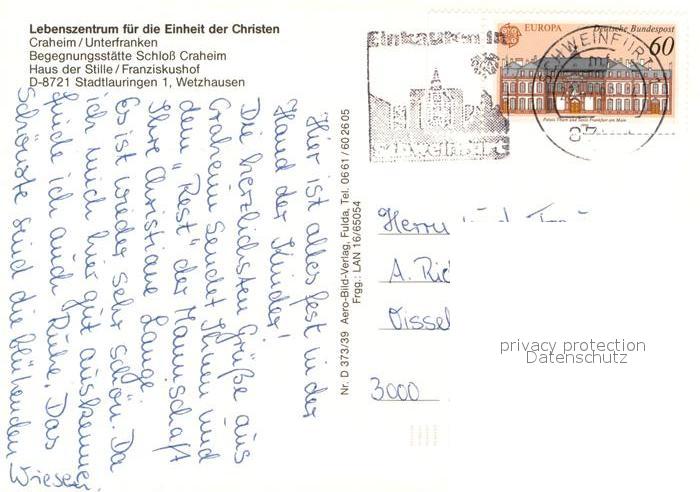 Lebenszentrum für die Einheit der Christen
Craheim/Unterfranken
Begegnungsstätte Schloß Craheim
Haus der Stille/Franziskushof
D-8721 Stadtlauringen 1, Wetzhausen
EUROPA Deutsche Bundespost
60
Palais Thurn und Taxis Frankfurt am Main
SCHWEINFURT
mf
87
Einkaufen in
Schweinfurt
Hier ist alles fest in der
Hand der Kinder!
Die herzlichsten Grüße aus
Craheim sendet Ihnen und
dem "Rest" der Mannschaft
Ihre Christiane Lange
Es ist wieder sehr schön. Da
ich mich hier gut auskenne
finde ich auch Ruhe. Das
Schönste sind die blühenden
Wiesen.
Nr. D 373/39 Aero-Bild-Verlag, Fulda, Tel. 0661/602605
Frgg.: LAN 16/65054
Herrn und
A. Rie
Vissel
3000
privacy protection
Datenschutz